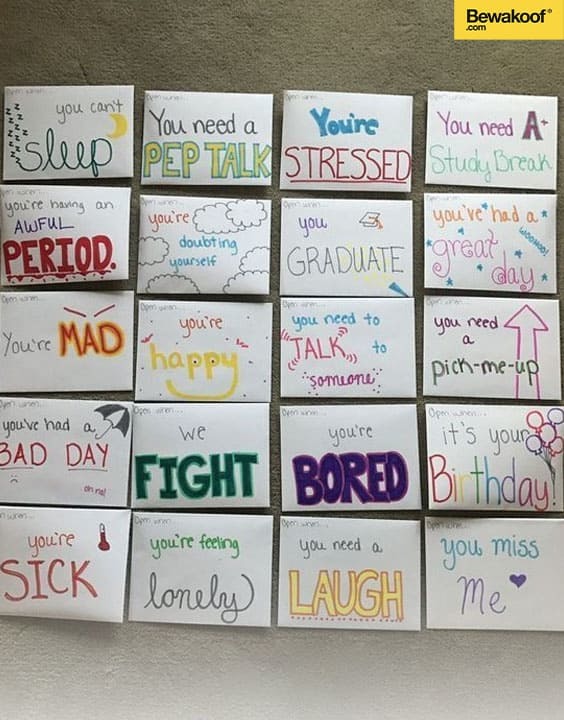 Bewakoof®
.com
Open when...
you can't
zzzzzz
Sleep
Open when...
You need a
PEP TALK
Open when...
You're
STRESSED
Open when...
You need A+
Study Break
Open when...
you're having an
AWFUL
PERIOD.
Open when...
you're
doubting
yourself
Open when...
you
GRADUATE
Open when...
you've had a
great
day
WOOHOO!
Open when...
You're MAD
Open when...
you're
happy
Open when...
you need to
"TALK" to
someone
Open when...
you need
a
pick-me-up
Open when...
you've had a
BAD DAY
oh no!
Open when...
we
FIGHT
Open when...
you're
BORED
Open when...
it's your
Birthday!
Open when...
you're
SICK
Open when...
you're feeling
lonely
Open when...
you need a
LAUGH
Open when...
you miss
Me